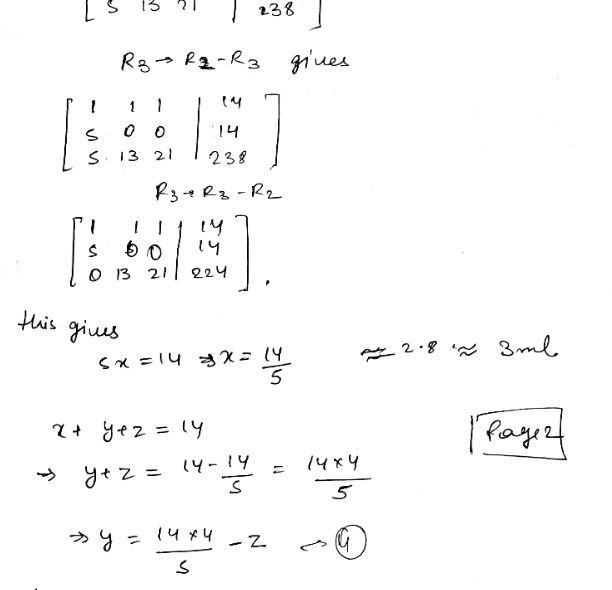 [ 5 13 21 | 238 ]
R3 → R2 - R3 gives
[ 1 1 1 | 14
5 0 0 | 14
5 13 21 | 238 ]
R3 → R3 - R2
[ 1 1 1 | 14
5 0 0 | 14
0 13 21 | 224 ] .
this gives
5x = 14 ⇒ x = 14/5 ≈ 2.8 ≈ 3ml
x + y + z = 14
Page 2
→ y + z = 14 - 14/5 = 14×4/5
⇒ y = 14×4/5 - z → ④